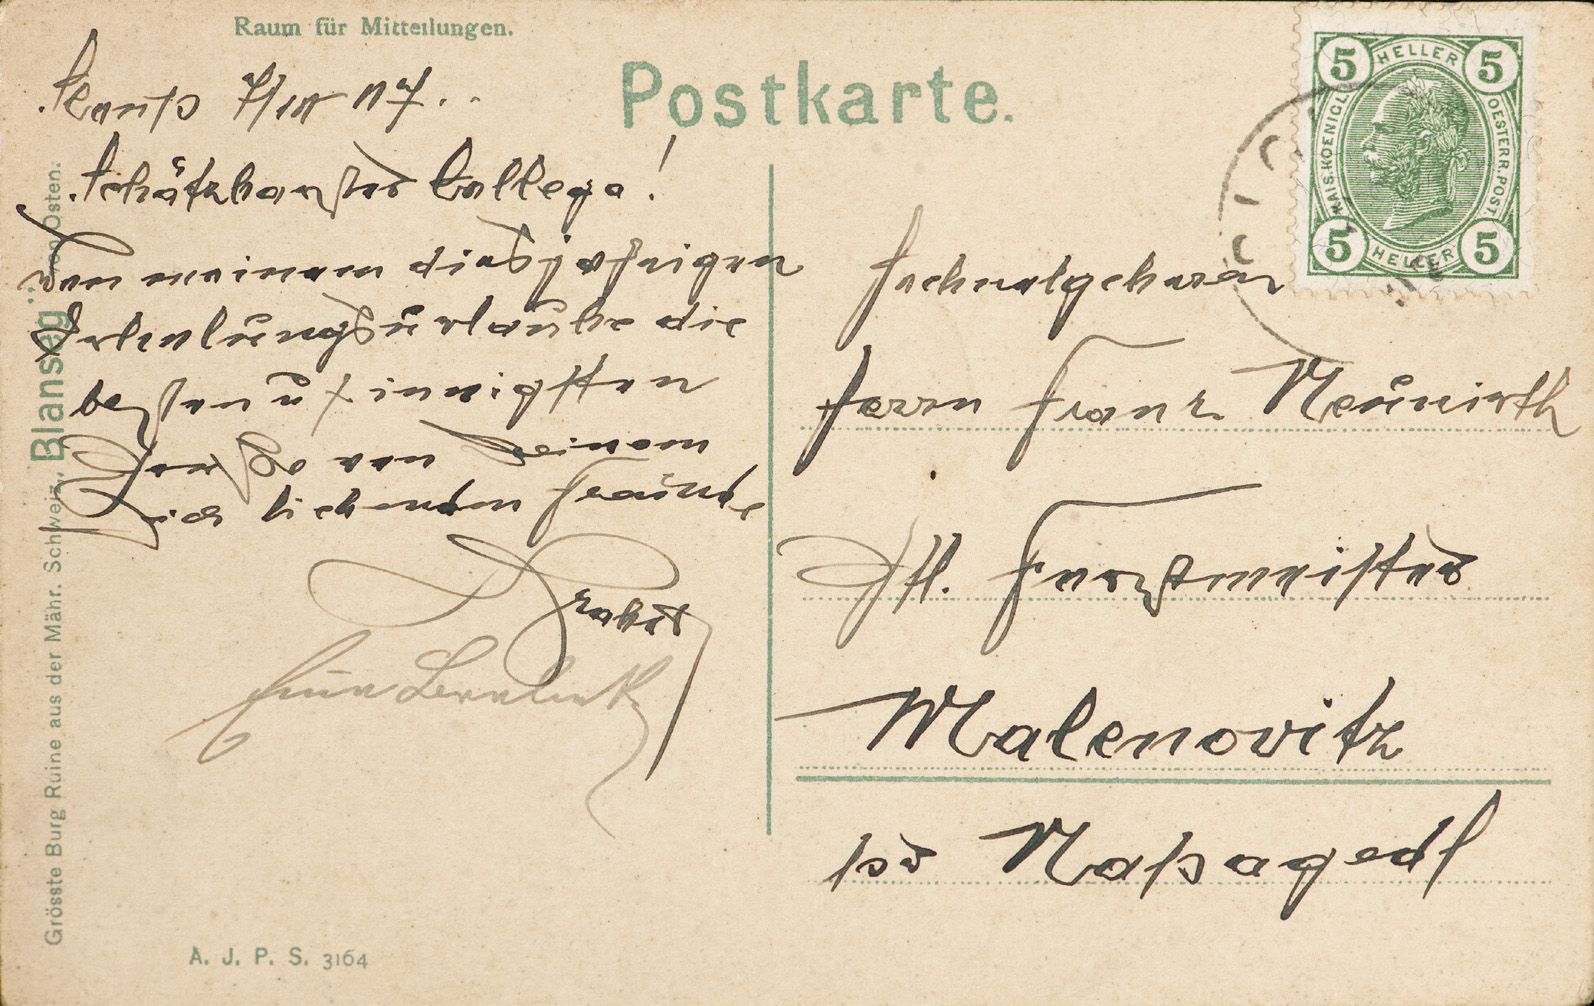 Raum für Mitteilungen.
Postkarte.
5 HELLER 5
KAIS. KOENIGL. OESTERR. POST.
5 HELLER 5
Schätzbarster Collega!
Von meinem diesjährigen
Erholungsurlaube die
besten u. innigsten
Grüße von Deinem
Dich liebenden Freunde
Hochwolgeboren
Herrn Franz Neuwirth
Forstmeister
Malenovitz
pr Napagedl
Grösste Burg Ruine aus der Mähr. Schweiz, Blansko
Osten.
A. J. P. S. 3164